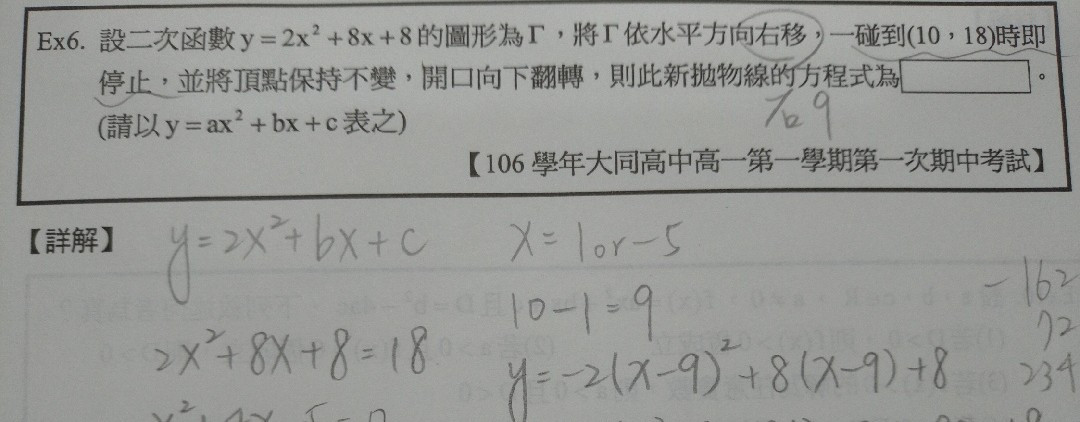 Ex6. 設二次函數 y = 2x² + 8x + 8 的圖形為 Γ，將 Γ 依水平方向右移，一碰到(10，18)時即
停止，並將頂點保持不變，開口向下翻轉，則此新拋物線的方程式為 。
(請以 y = ax² + bx + c 表之)
右9
【106 學年大同高中高一第一學期第一次期中考試】
【詳解】
y = 2x² + bx + c
x = 1 or -5
10 - 1 = 9
2x² + 8x + 8 = 18
y = -2(x-9)² + 8(x-9) + 8
-162
72
234